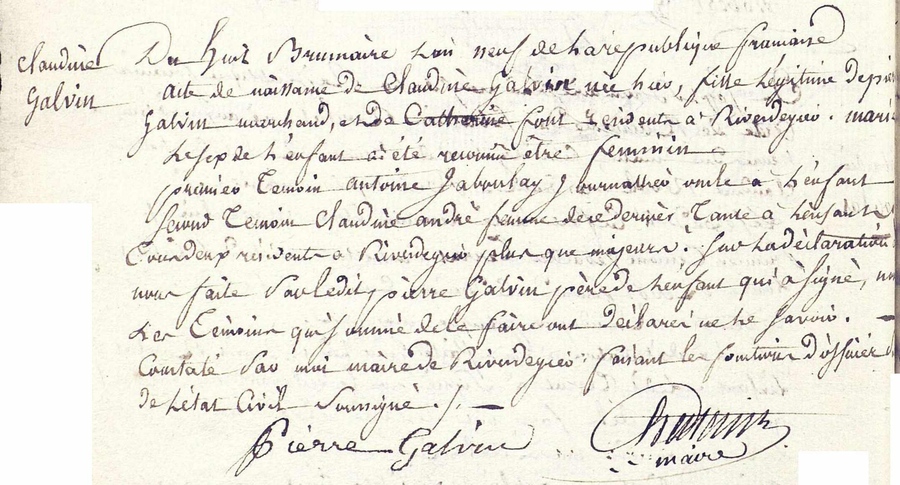 Claudine
Galvin
Du huit Brumaire L'an neuf de La republique francaise
acte de naissance de Claudine Galvin née hier, fille Légitime de pie
Galvin marchand, et de Catherine font residents à Rivedegier. mari
Le sex de L'enfant a été reconnu être feminin
premier Temoin antoine Jaboulay Journalier oncle a L'enfant
Second Temoin Claudine andré femme de ce dernier Tante à L'enfant
Tous deux residents a Rivedegier plus que majeurs. Sur La déclaration
nous faite Par Ledit pierre Galvin père de L'enfant qui à signé, n
Les Temoins que sommé de le faire ont declarés ne Le Savoir.
Constaté Par moi maire de Rivedegier faisant Les fonctions d'officier
de L'état Civil Soussigné ./.
Pièrre Galvin
maire